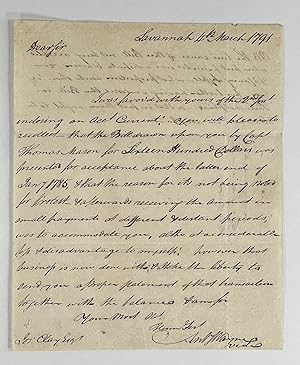 Savannah 4th March 1791
Dear Sir
I was favor'd with yours of the 2nd Inst
inclosing an Acct Current. You will please to
recollect that the Bill drawn upon you by Capt
Thomas Mason for Sixteen Hundred Dollars was
presented for acceptance about the latter end of
Jany 1785, & that the reason for its not being noted
for protest & afterwards receiving the amount in
small payments at different & distant periods
was to accommodate you, altho at a considerable
loss & disadvantage to myself; however that
business is now done with & I take the liberty to
send you a proper statement of that transaction
together with the balance & am Sir
Your Most Ob.
Hum Sert
Jos. Clay Esqr